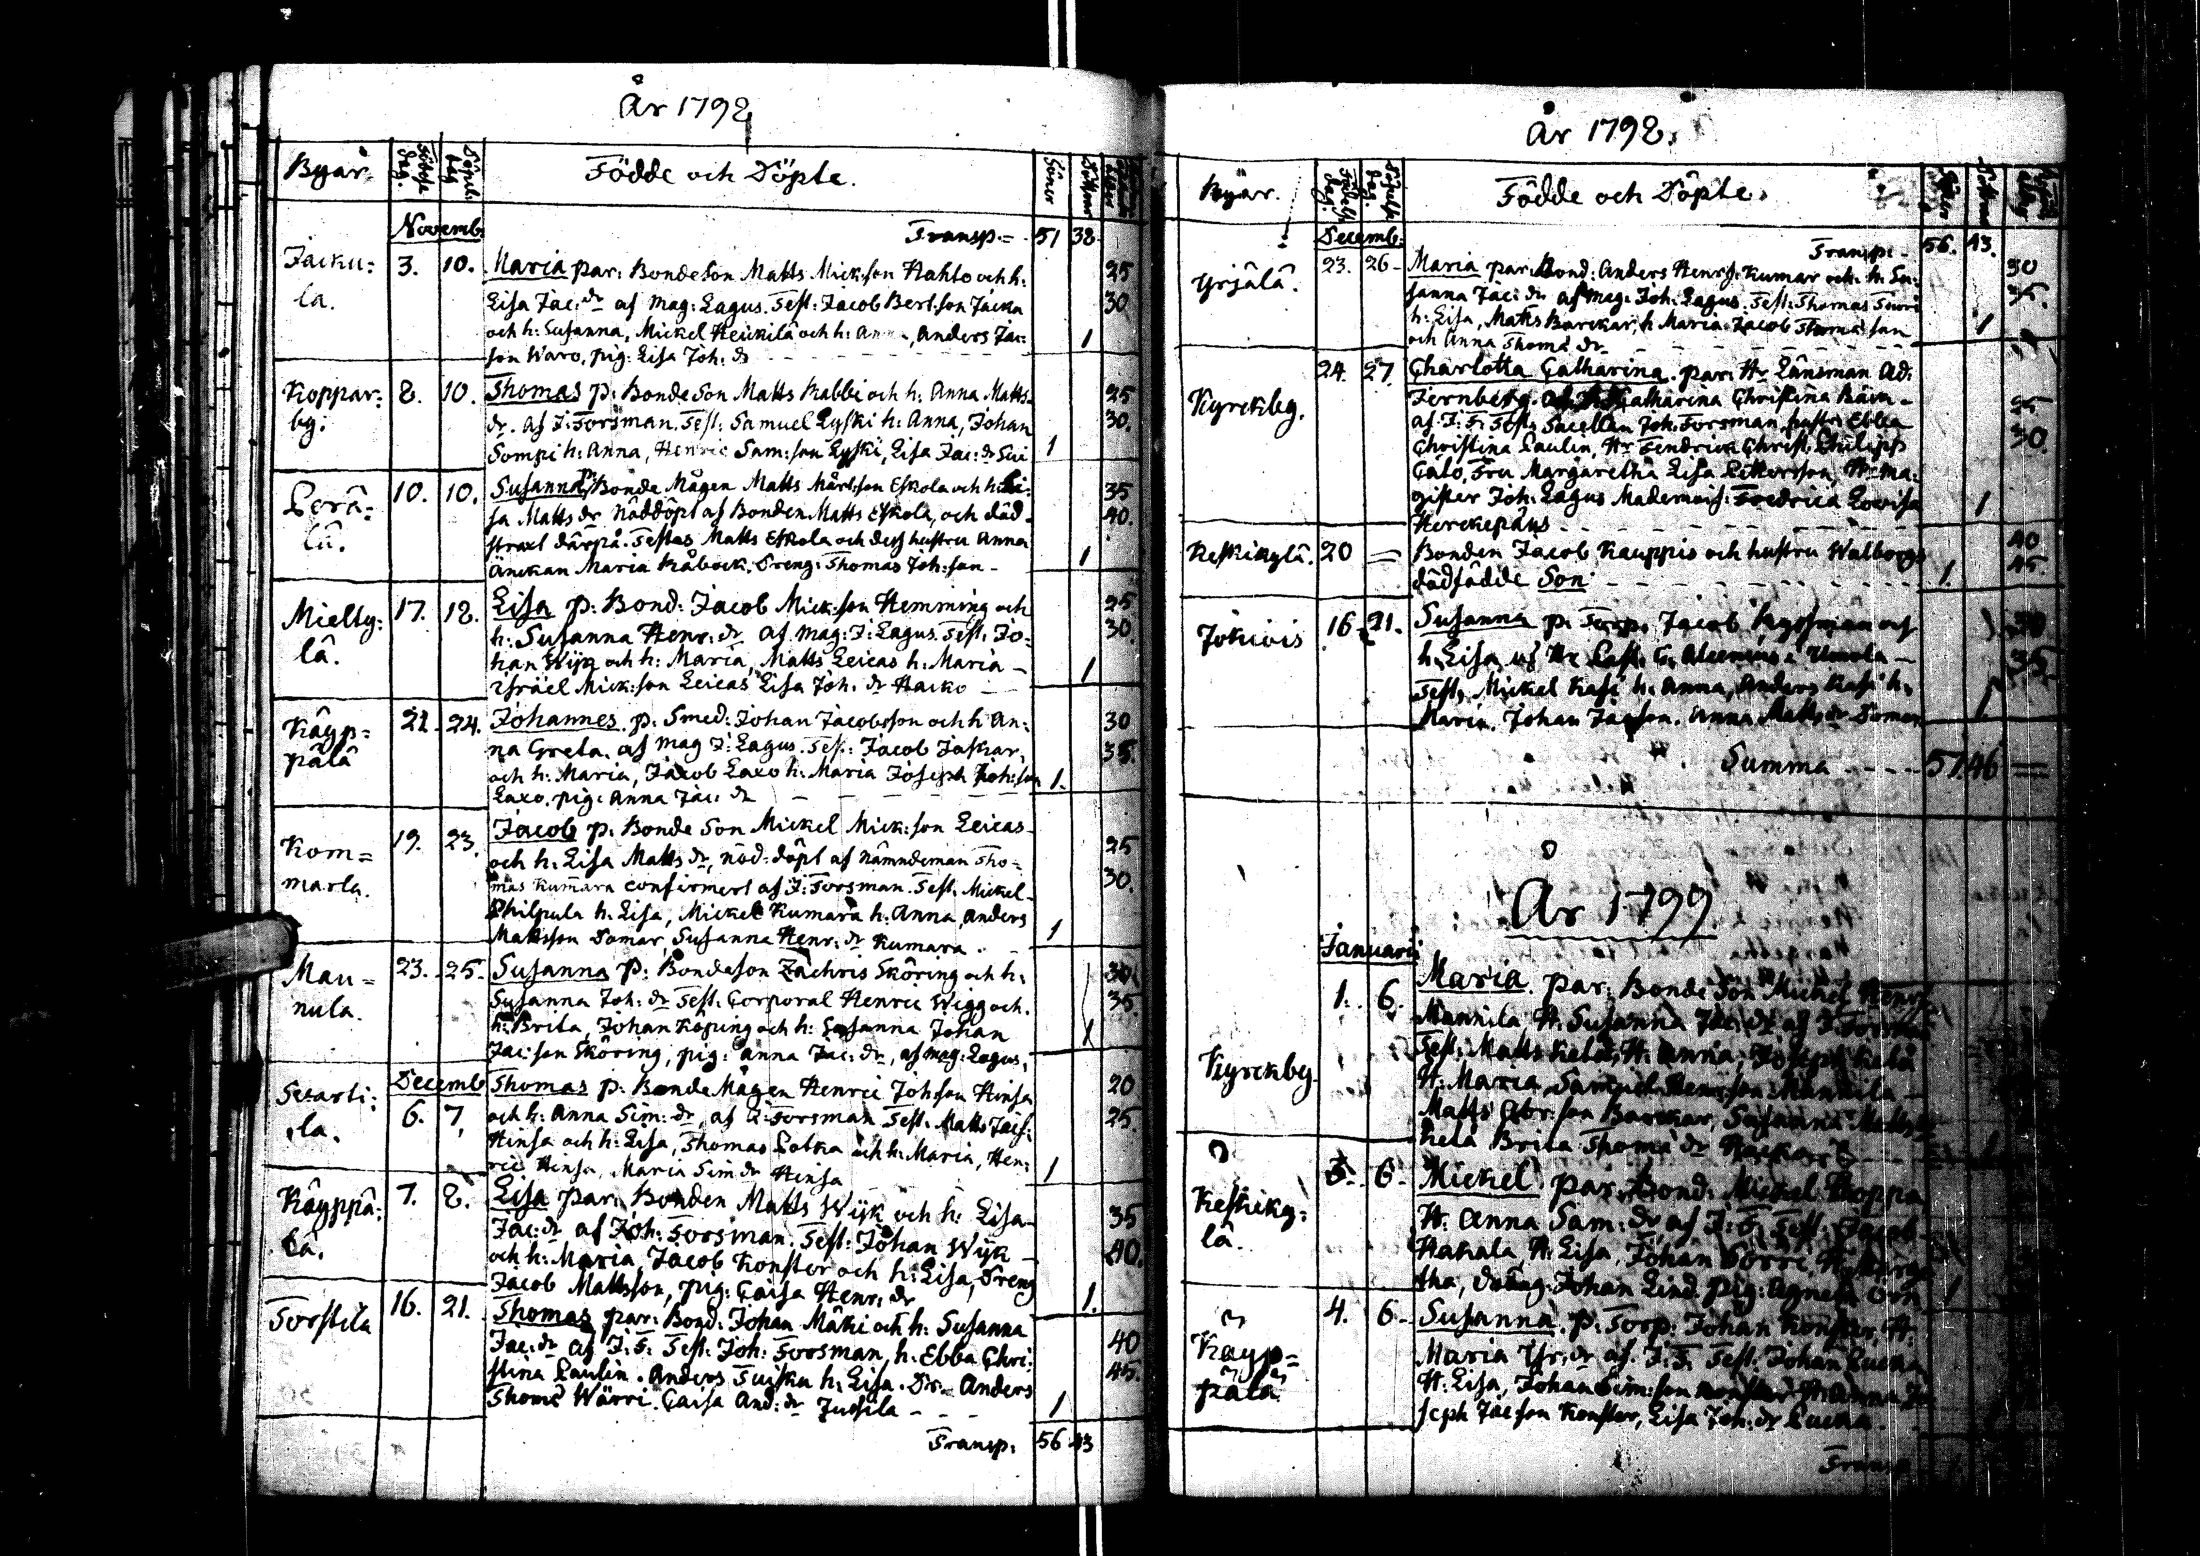 År 1798
Byar. Födelse dag. Döpelse dag Födde och Döpte. Söner Döttrar
Novemb: Transp. = 51 38
Jacku: 3. 10. Maria par: Bondeson Matts Mick:son Hahto och h: 25
la. Lisa Jac: dr af Mag: Lagus. Test: Jacob Bert:son Jacka 30
och h: Susanna, Mickel Heickilä och h: Anna, Anders Jac: 1
son Waro, pig: Lisa Joh: dr
Koppar: 8. 10. Thomas p: Bonde Son Matts Rabbi och h: Anna Matts 25
by: dr. af J: Forsman. Test: Samuel Lyski h: Anna, Johan 30.
Sompi h: Anna, Henric Sam:son Lyski, Lisa Jac: dr Sui 1
Perä: 10. 10. Susanna p: Bonde Mågen Matts Mårt:son Eskola och h: Li: 35
lä. sa Matts dr Nöddöpt af Bonden Matts Eskola, och död 40.
straxt därpå. Testes Matts Eskola och dess hustru Anna
Änckan Maria Råbock. Dreng: Thomas Joh:son - 1
Mielty: 17. 18. Lisa p: Bond: Jacob Mick:son Hemming och 25
lä. h: Susanna Henr: dr af Mag: J: Lagus. Test: Jo: 30.
han Wijk och h: Maria, Matts Leicas h: Maria -
Israël Mick:son Leicas Lisa Joh: dr Hacko 1
Käyp= 21. 24. Johannes. p: Smed: Johan Jacobsson och h: An: 30
pälä na Greta. af Mag J: Lagus. Test: Jacob Jaskar, 35.
och h: Maria, Jacob Laxo h: Maria Joseph Joh:son 1.
Laxo. pig: Anna Jac: dr
Kom= 19. 23. Jacob p: Bonde Son Mickel Mick:son Leicas 25
marla. och h: Lisa Matts dr, nöd-döpt af Nämndeman Tho= 30.
mas Kumara confirmert af J: Forsman. Test. Mickel
Philpula h: Lisa, Mickel Kumara h: Anna, Anders
Mattsson Domar, Susanna Henr: dr Kumara. 1
Man= 23. 25. Susanna p: Bondeson Zachris Sköring och h: 30
nula. Susanna Joh: dr Test: Corporal Henric Wigg och 35.
h: Brita, Johan Köping och h: Susanna Johan 1
Jac:son Sköring, pig: Anna Jac: dr, af Mag: Lagus,
Decemb
Scarti: 6. 7. Thomas p: Bonde Mågen Henric Joh:son Hinsa 20
la. och h: Anna Sim: dr, af J: Forsman Test: Matts Jacs: 25.
Hinsa och h: Lisa, Thomas Potka och h: Maria, Hen:
ric Hinsa, Maria Sim dr Hinsa 1
Käyppä: 7. 8. Lisa par: Bonden Matts Wijk och h: Lisa 35
lä. Jac: dr af Joh: Forsman. Test: Johan Wijk 40.
och h: Maria, Jacob Konster och h: Lisa, Dreng
Jacob Mattsson, pig: Caisa Henr: dr 1.
Torstila 16. 21. Thomas par: Bond: Johan Mäki och h: Susanna
Jac: dr af J: F: Test: Joh: Forsman, h: Ebba Chri: 40
stina Paulin. Anders Tuisku h: Lisa. Dr. Anders 45.
Thom: Wärri. Caisa And: dr Jussila 1
Transp. 56 43
År 1798.
Byar. Födde och Döpte.
Decemb: Transp: 56. 43.
Yrjälä. 23. 26. Maria par: Bond: Anders Henrs: Kumar och h: Su: 30
sanna Jac: dr af Mag: Joh: Lagus. Test: Thomas 35.
h: Lisa, Matts Barckar, h: Maria Jacob Thoma son 1
och Anna Thoma dr
Kyrckby. 24. 27. Charlotta Catharina. par: Hr Länsman Ad:
Jernberg. Catharina Christina 25
af J: F: Test: Sacellan Joh: Forsman, hustr: Ebba 30
Christina Paulin, Hr Fendrick Christ: Philipp
Calo, Fru Margaretha Lisa Pettersson, Hr Ma:
gister Joh: Lagus Mademois: Fredrica Lovisa 1
Herckepäus
Keskikylä. 20 = Bonden Jacob Kauppis och hustru Walborgs 40
dödfödde Son 1. 45.
Jokiois 16. 21. Susanna p: Torp: Jacob och
h: Lisa af Hr Past: Urjola 35
Test, Mickel Kasi h: Anna, Anders Kasi h:
Maria. Johan Jacson. Anna Matts dr Domar 1
Summa 57. 46
År 1799.
Januarii
1. 6. Maria par: Bonde Son Mickel Henrs:
Mannila H: Susanna Jac: dr af J Forsman
Test: Matts Kela, H: Anna, Joseph Kela
Kyrckby H: Maria Samuel Henr:son Mannila
Matts Abr:son Barckar, Susanna Matts
Kela Brita Thoma dr
5. 6. Mickel par: Bond: Mickel Koppa
Keskiky: H: Anna Sam: dr, af J: F: Test: Jacob
lä. Hakala H: Lisa, Johan Sorri, H: Marga
tha, dräng Johan Lind. pig: Agneta Örn 1
4. 6. Susanna. p: Torp: Johan Konster, H:
Käyp= Maria Yr: dr af J: F: Test: Johan Lucka
pälä H: Lisa, Johan Sim:son Konster H: Anna Jo
seph Jac son Konster, Lisa Joh: dr Lucka
Transp